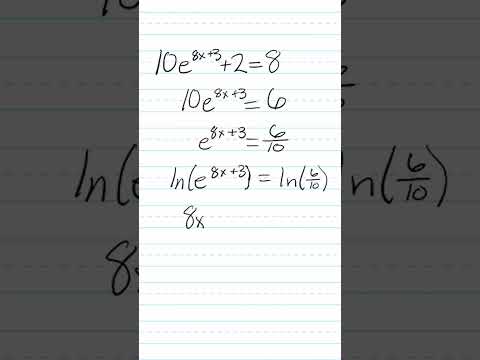 10e^{8x+3}+2=8
10e^{8x+3}=6
e^{8x+3}=\frac{6}{10}
ln(e^{8x+3})=ln(\frac{6}{10})
8x